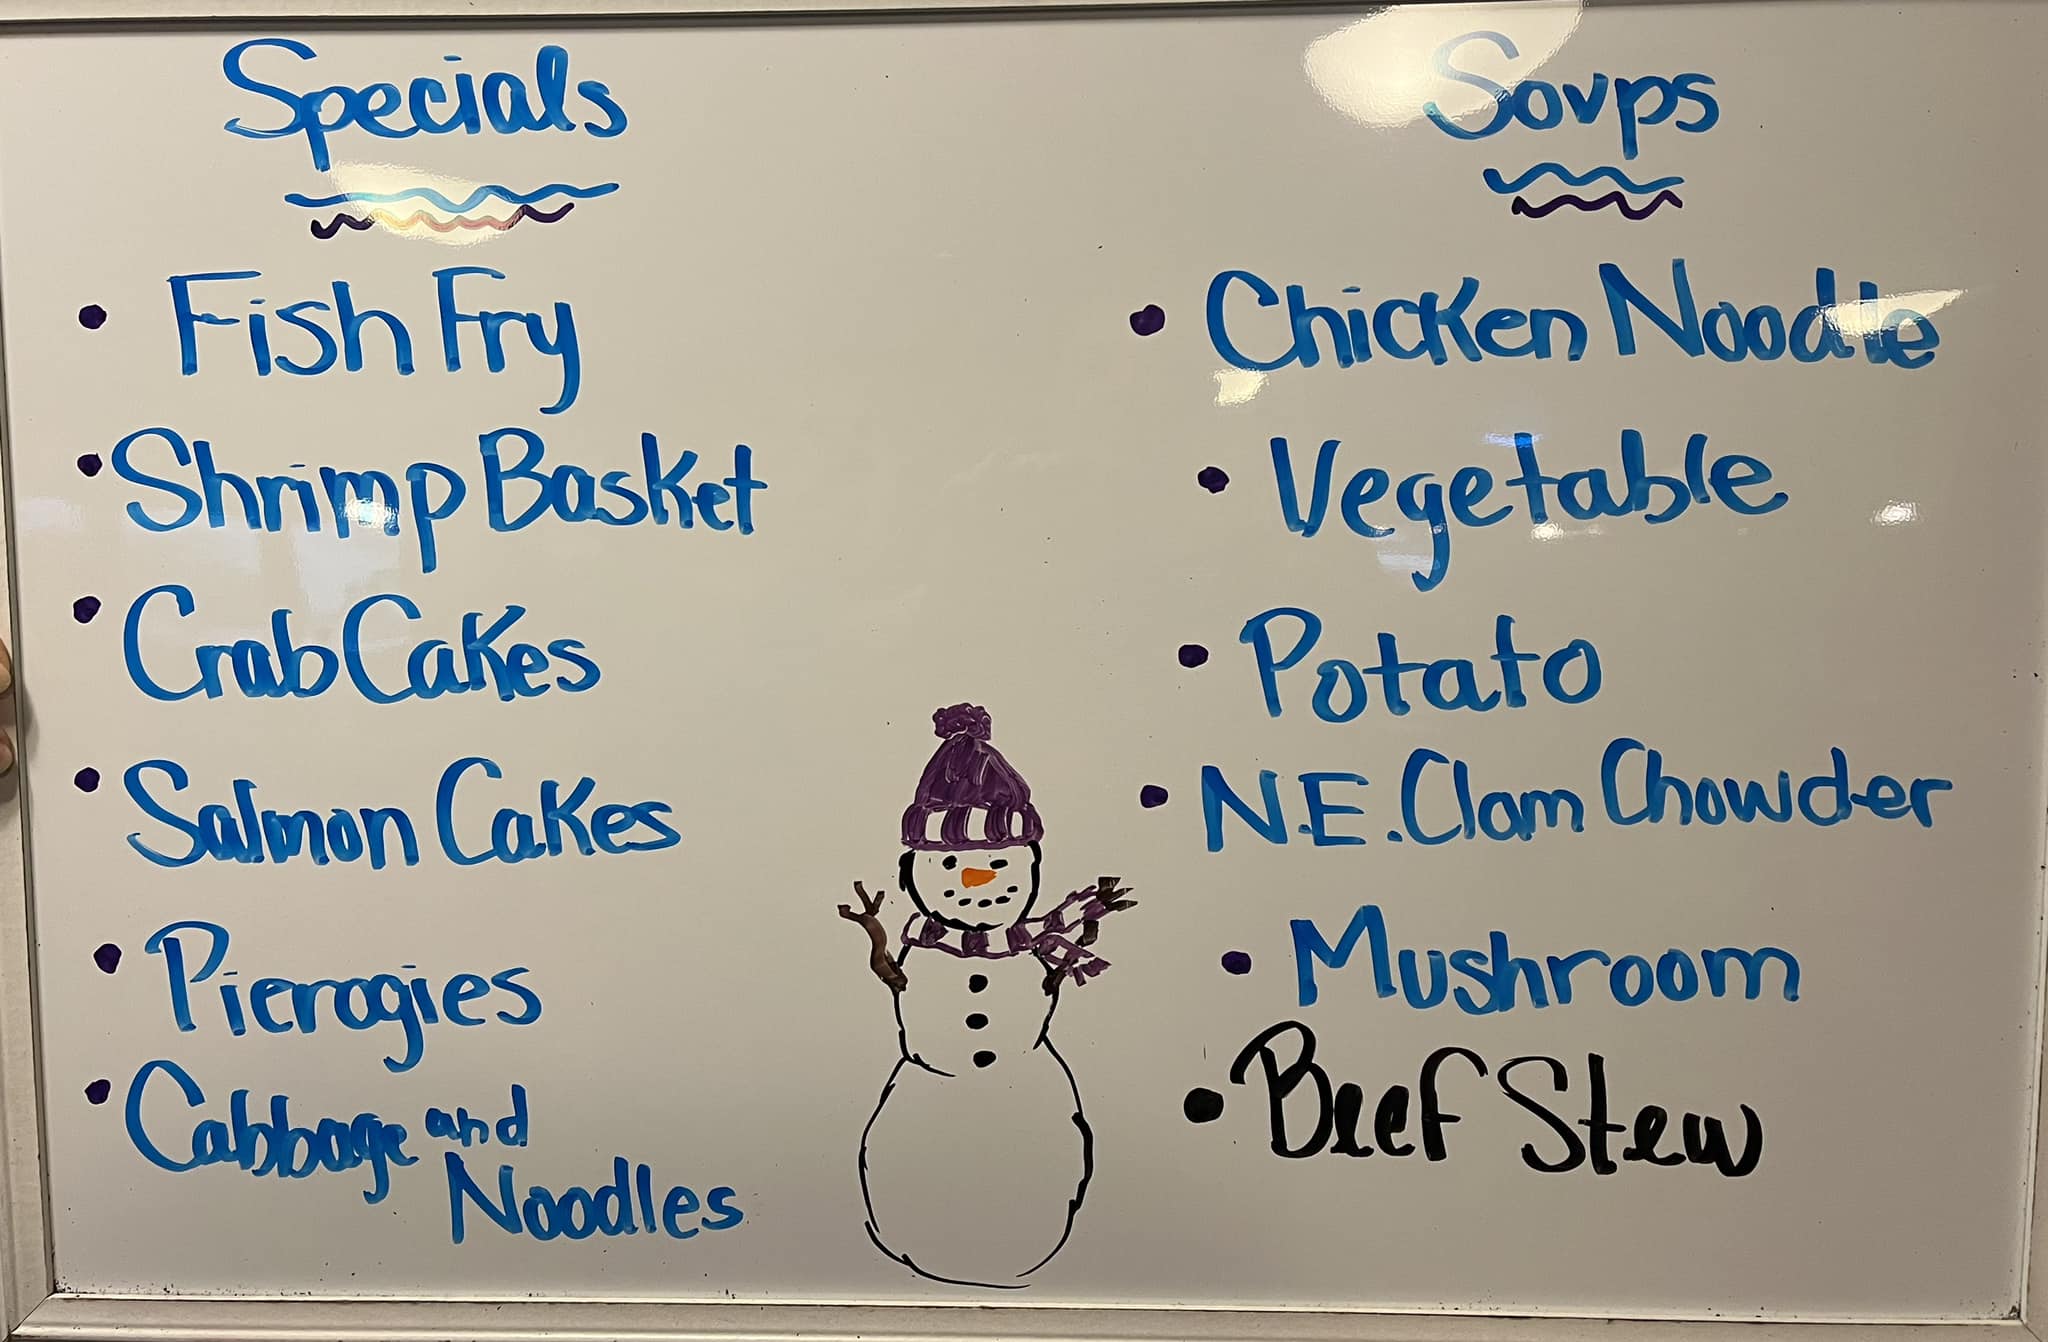 Specials
• Fish Fry
• Shrimp Basket
• Crab Cakes
• Salmon Cakes
• Pierogies
• Cabbage and
Noodles
Soups
• Chicken Noodle
• Vegetable
• Potato
• N.E. Clam Chowder
• Mushroom
• Beef Stew